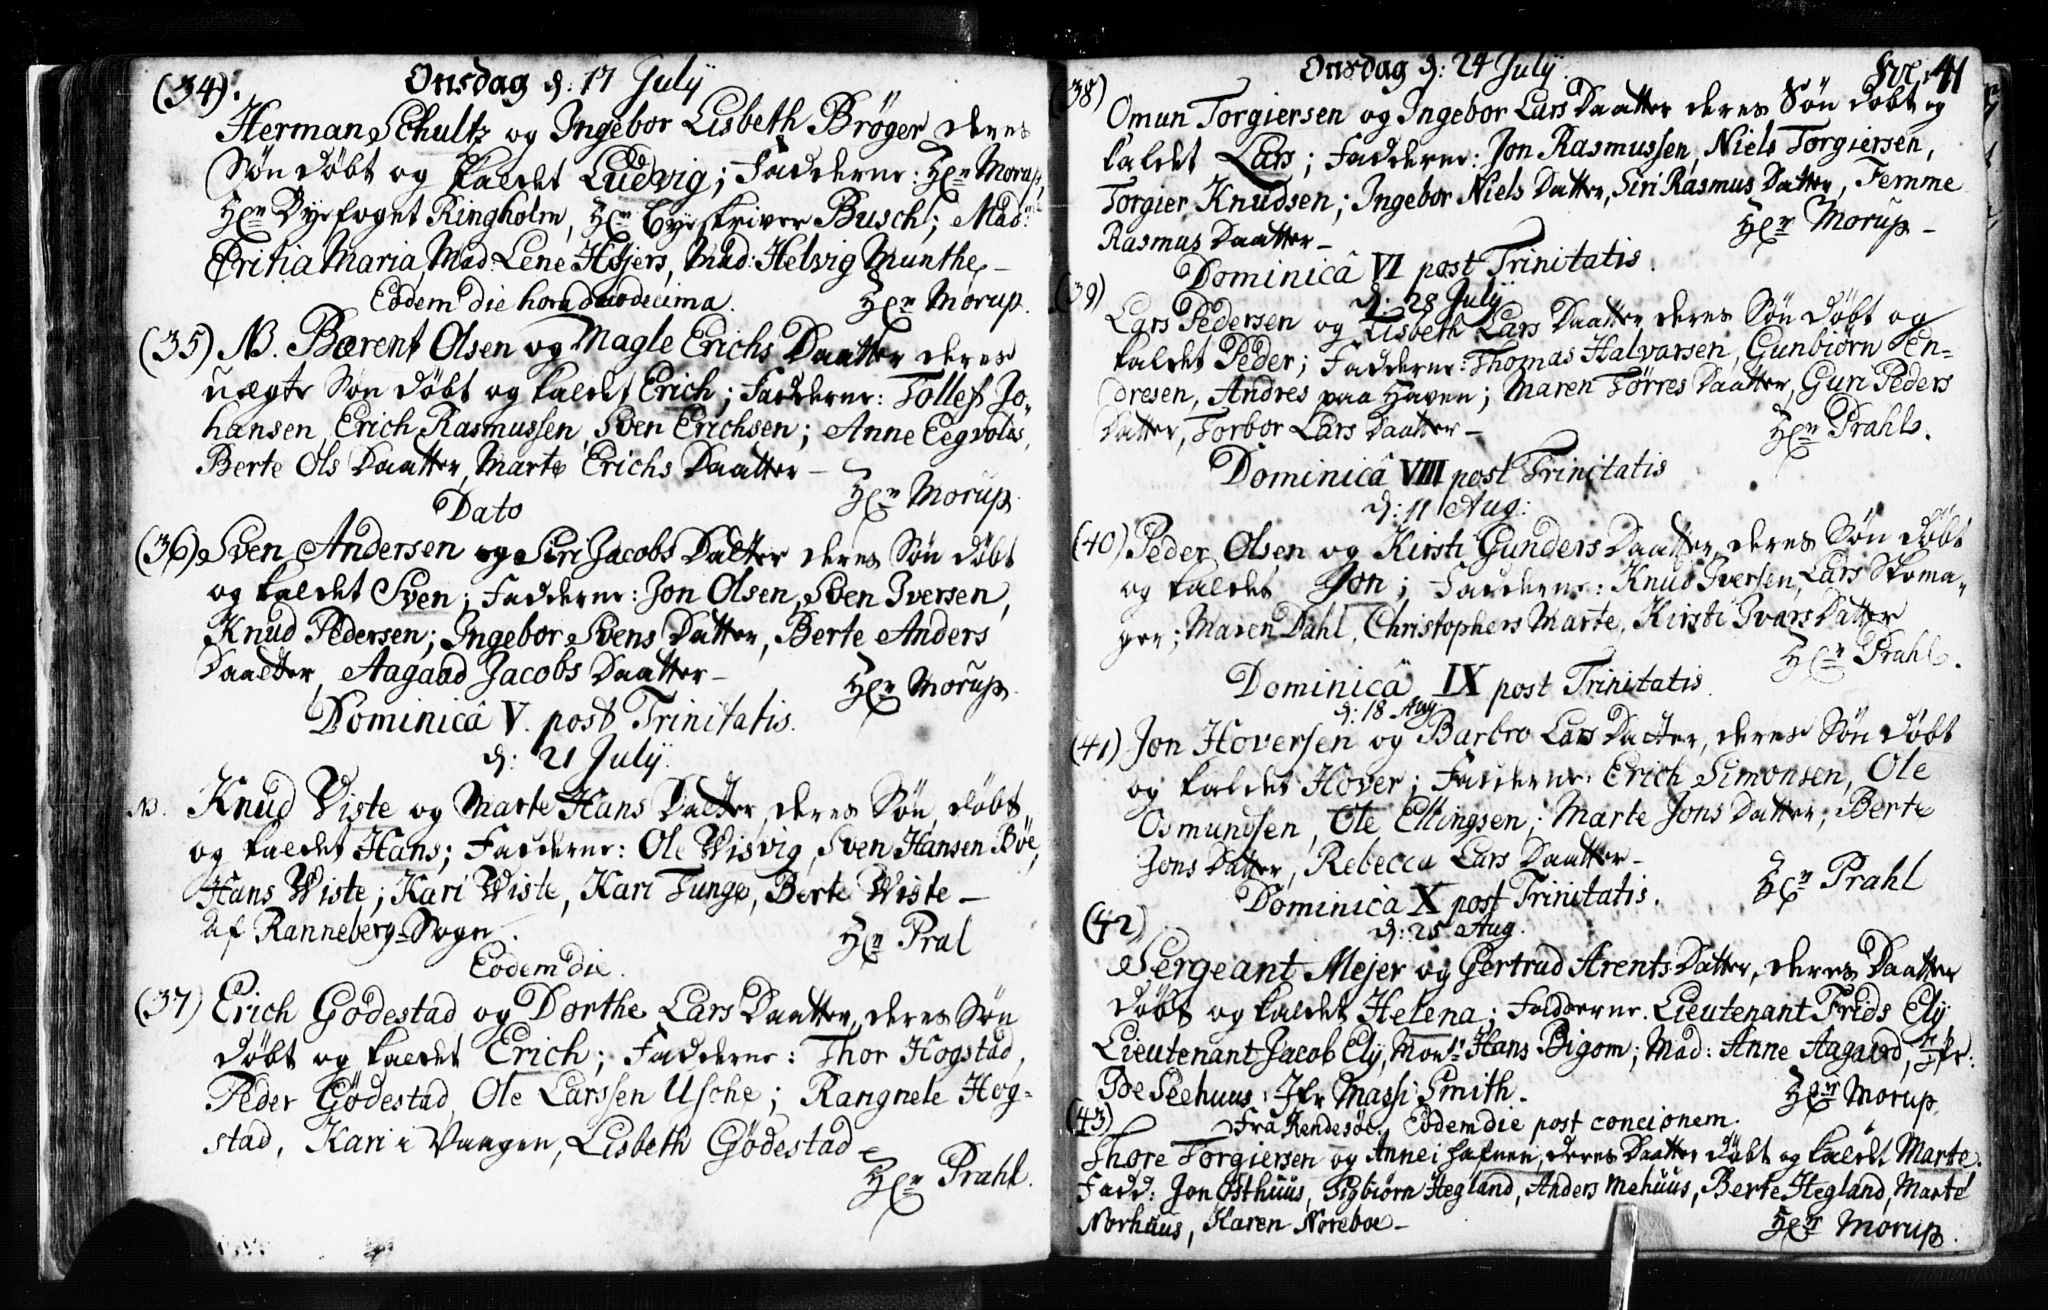 Onsdag d: 17 July
(34).
Herman Schultz og Ingebor Lisbeth Brøger deres
Søn døbt og kaldet Ludvig; Fadderne: Hr Morup,
Hr Byefoget Ringholm, Hr Byeskriver Busch; Mad:
Maria, Mad: Lene Hsjers, Mad: Helvig Munthe,
Eodem die hora duodecima. Hr Morup.
(35) NB. Bærent Olsen og Magle Erichs Daatter deres
uægte Søn døbt og kaldet Erich; Fadderne: Tollef Jo-
hansen, Erich Rasmussen, Sven Erichsen; Anne Eegvolds,
Berte Ols Daatter, Marte Erichs Daatter –
Dato Hr Morup.
(36) Sven Andersen og Siri Jacobs Datter deres Søn døbt
og kaldet Sven; Fadderne: Jon Olsen, Sven Iversen,
Knud Pedersen; Ingebor Svens Datter, Berte Anders
Daatter, Aagaad Jacobs Daatter – Hr Morup.
Dominicâ V. post Trinitatis.
d: 21 July.
NB. Knud Viste og Marte Hans Datter, deres Søn døbt
og kaldet Hans; Fadderne: Ole Visvig, Sven Hansen Bøe,
Hans Viste; Kari Viste, Kari Tunge, Berte Viste –
Af Ranneberg-Sogn. Hr Pral
Eodem die.
(37) Erich Gödestad og Dorthe Lars Daatter, deres Søn
døbt og kaldet Erich; Fadderne: Thor Hogstad,
Peder Gödestad, Ole Larssen Usche; Rangnele Hog-
stad, Kari i Vaagen, Lisbeth Gödestad –
Hr Prahl.
Onsdag d: 24 July. 41
38)
Omun Torgiersen og Ingebor Lars Daatter deres Søn døbt og
kaldet Lars; Fadderne: Jon Rasmussen, Niels Torgiersen,
Torgier Knudsen; Ingebor Niels Datter, Siri Rasmus Datter, Femme
Rasmus Daatter – Hr Morup –
Dominicâ VI post Trinitatis.
39) d: 28 July
Lars Pedersen og Lisbeth Lars Daatter deres Søn døbt og
kaldet Peder; Fadderne: Thomas Halvarsen, Gunbiørn En-
dresen, Andres paa Haven; Maren Törres Daatter, Guri Peders
Datter, Torbor Lars Daatter – Hr Prahl.
Dominicâ VIII post Trinitatis
d: 11 Aug:
(40) Peder Olsen og Kirsti Gunders Daatter, deres Søn døbt
og kaldet Jon; Fadderne: Knud Iversen, Lars Skoma-
ger; Maren Dahl, Christophers Marte, Kirsti Ivars Datter
Hr Prahl.
Dominicâ IX post Trinitatis.
d: 18 Aug
(41) Jon Hoversen og Barbro Lars Datter, deres Søn døbt
og kaldet Hover; Fadderne: Erich Simonsen, Ole
Osmundsen, Ole Ellingsen; Marte Jons Datter; Berte
Jons Datter, Rebecca Lars Daatter –
Hr Prahl
Dominica X post Trinitatis.
(42) d: 25 Aug.
Sergeant Mejer og Gertrud Arents Datter, deres Daatter
døbt og kaldet Helena; Fadderne. Lieutenant Frids Ely
Lieutenant Jacob Ely, Monsr Hans Bigom; Mad: Anne Aagaard, Jfr:
Boe Seehuus, Jfr Massi Smith. Hr Morup.
(43) Fra Rendesøe. Eodem die post concionem.
Thore Torgiersen og Anne i Hafnen, deres Daatter døbt og kaldet Marte.
Fadd: Jon Østhuus, Sigbiørn Hegland, Anders Mehuus, Berte Hegland, Marte
Norhuus, Karen Noreboe – Hr Morup.